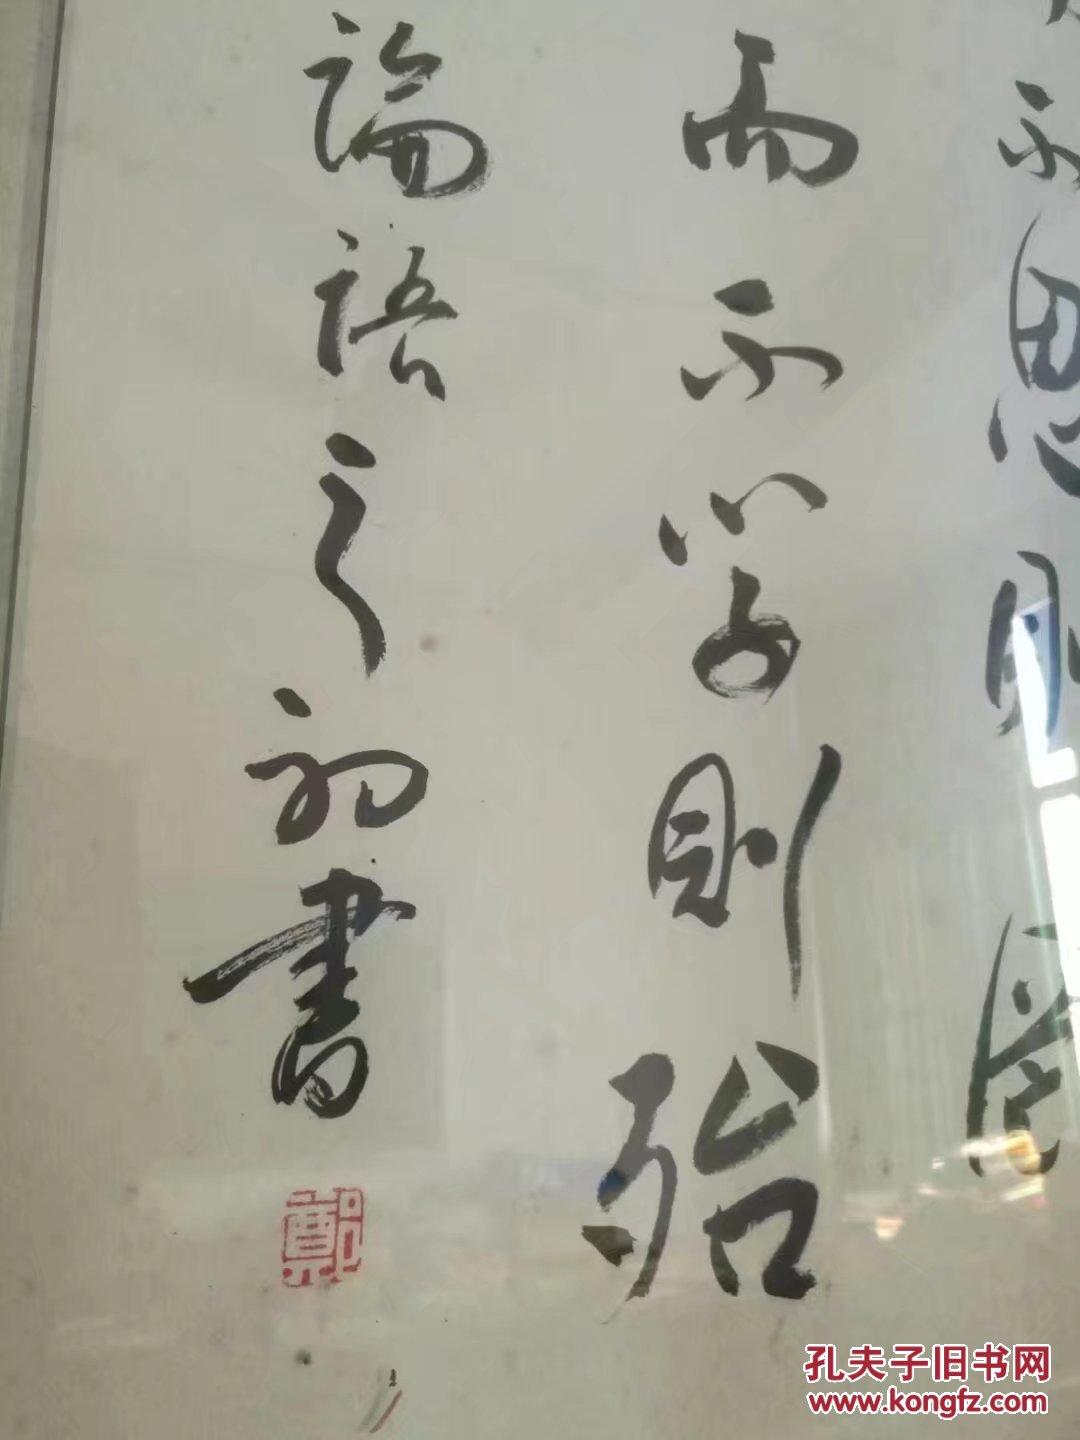 不思則罔
而不學則殆
論語之初書
鄭
孔夫子旧书网
www.kongfz.com